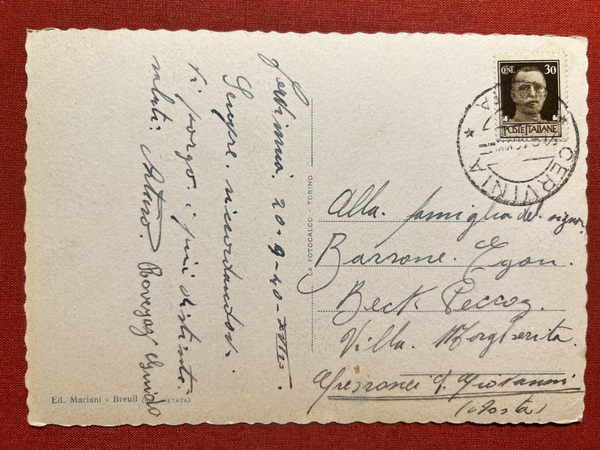 Cervinia. 20-9-40-XVIII.
Sempre ricordandovi
Vi porgo i più distinti.
saluti: Arturo Guido
Ed. Mariani - Breuil
LA FOTOCALCO - TORINO
CENT. 30
POSTE ITALIANE
CERVINIA
Alla famiglia del signor
Barrone. Egon.
Beck Peccoz
Villa. Margherita.
Gressoney S. Giovanni
(Aosta)